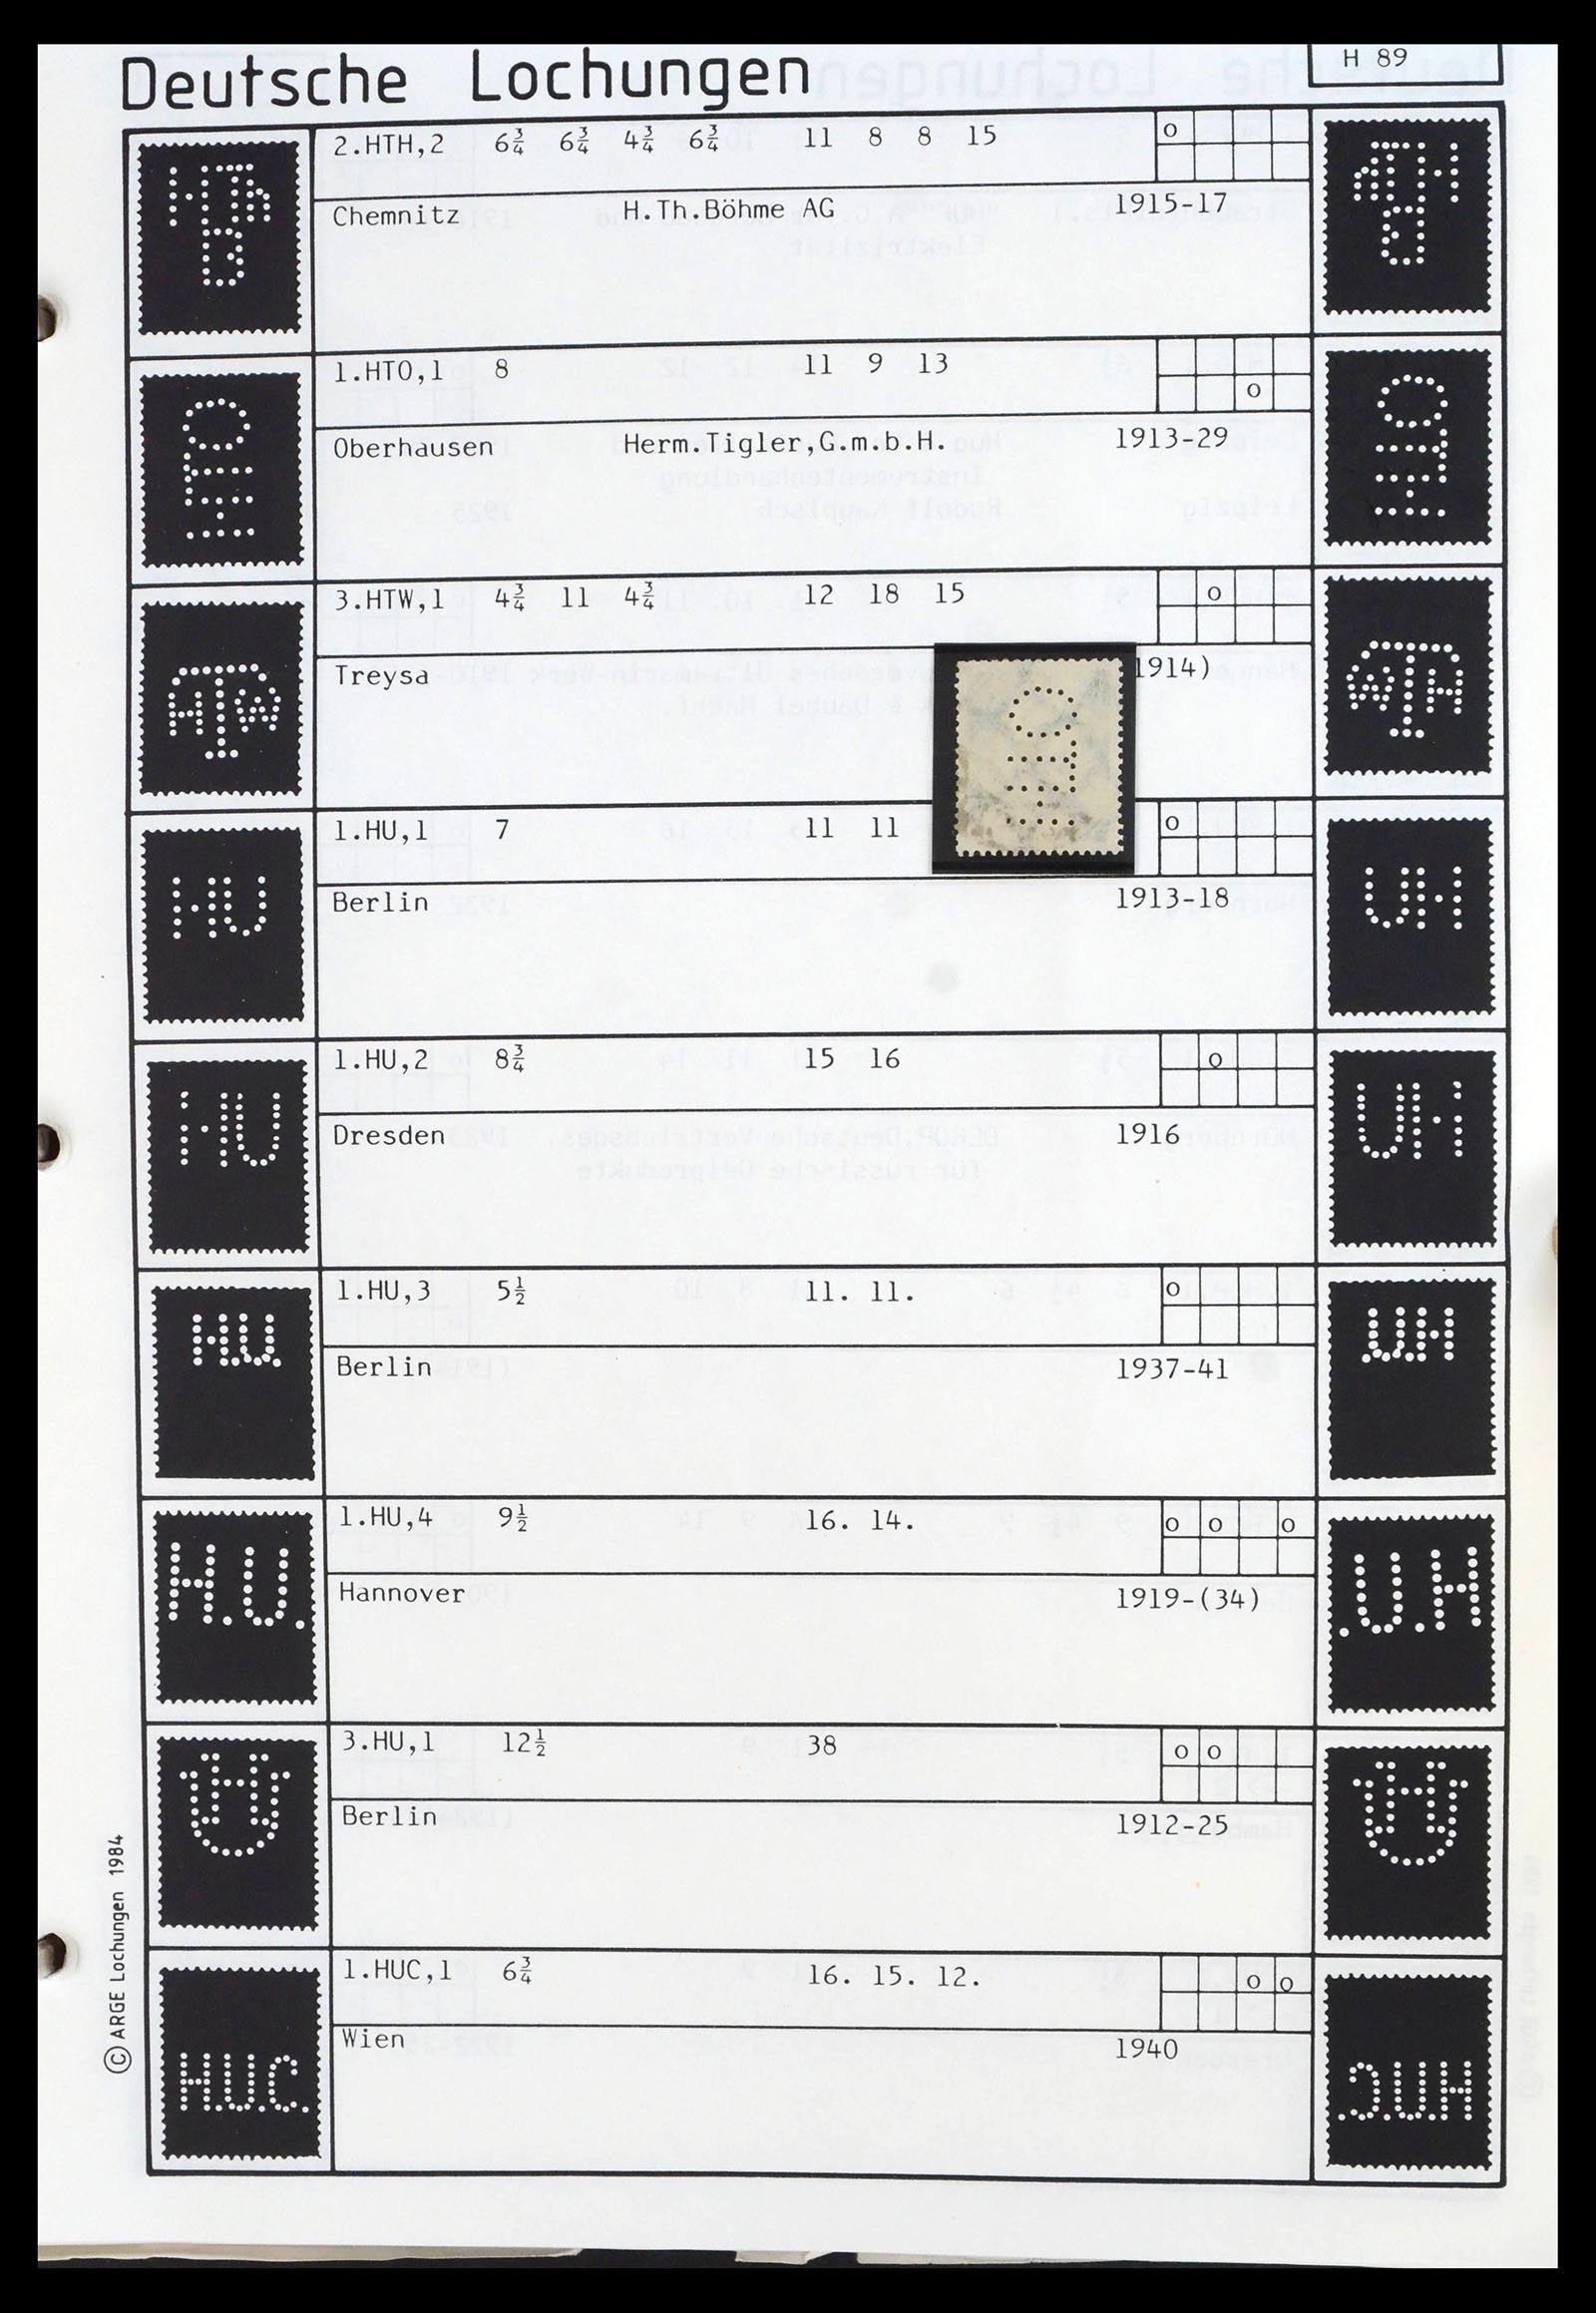 Deutsche Lochungen
H 89
2.HTH,2 6¾ 6¾ 4¾ 6¾ 11 8 8 15
Chemnitz H.Th.Böhme AG 1915-17
1.HTO,1 8 11 9 13
Oberhausen Herm.Tigler,G.m.b.H. 1913-29
3.HTW,1 4¾ 11 4¾ 12 18 15
Treysa 1914)
1.HU,1 7 11 11
Berlin 1913-18
1.HU,2 8¾ 15 16
Dresden 1916
1.HU,3 5½ 11. 11.
Berlin 1937-41
1.HU,4 9½ 16. 14.
Hannover 1919-(34)
3.HU,1 12½ 38
Berlin 1912-25
1.HUC,1 6¾ 16. 15. 12.
Wien 1940
© ARGE Lochungen 1984